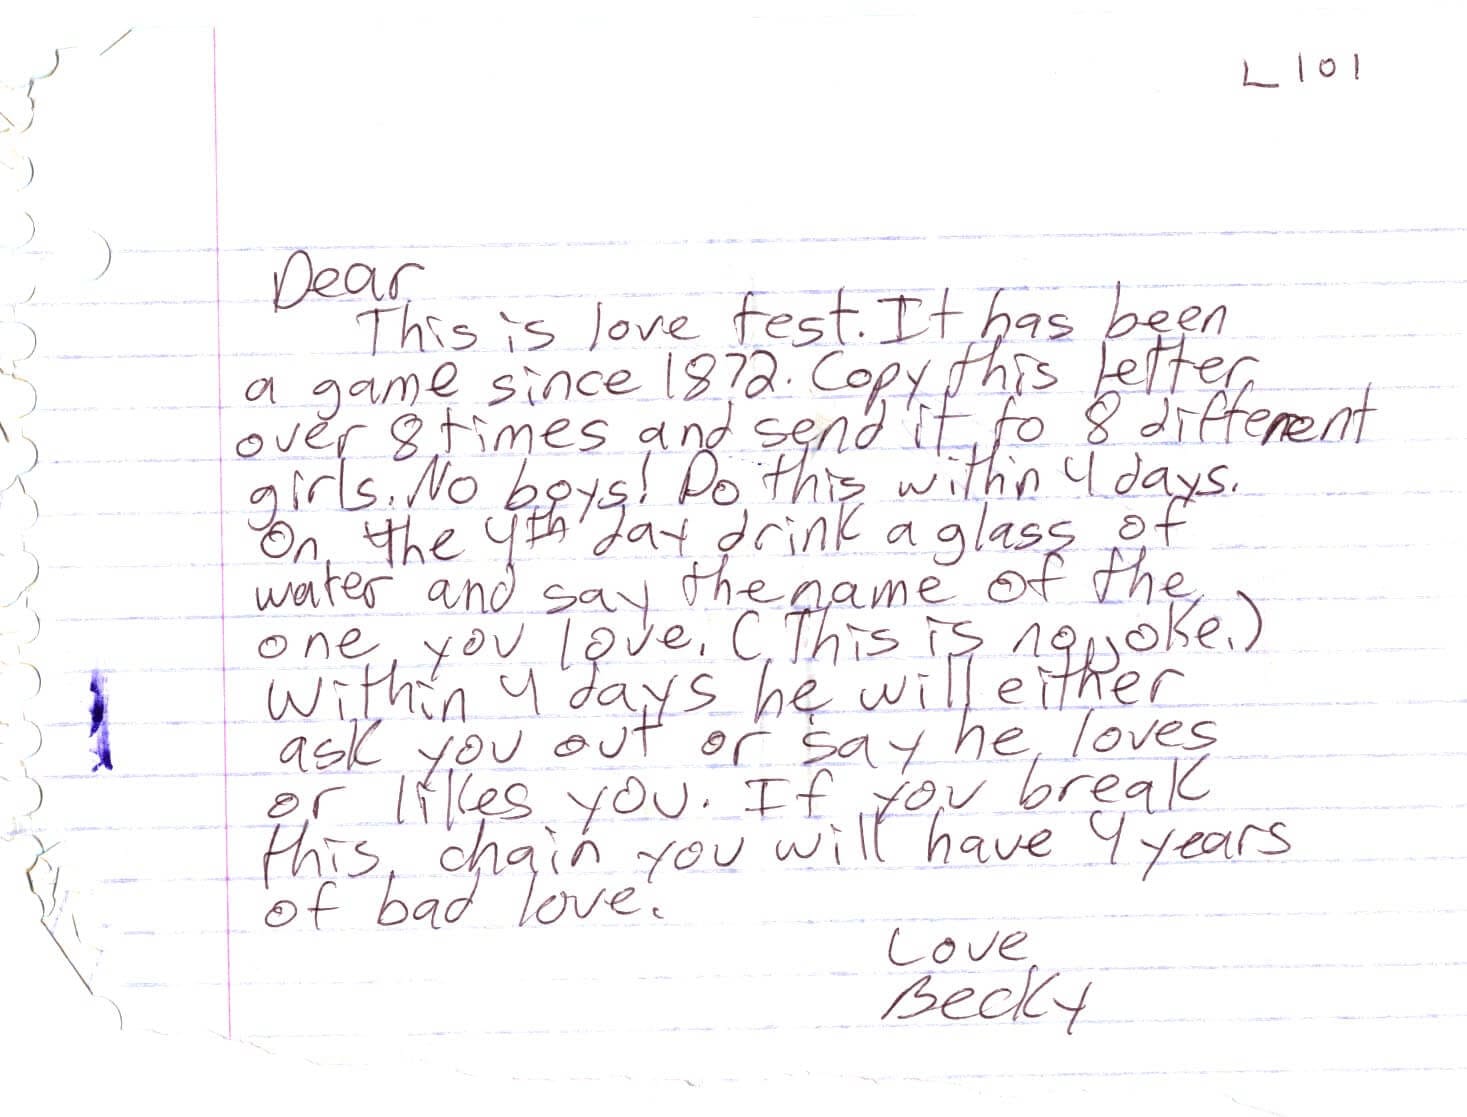 L 101
Dear
This is love fest. It has been
a game since 1872. Copy this letter
over 8 times and send it to 8 different
girls. No boys! Do this within 4 days.
On the 4th day drink a glass of
water and say the name of the
one you love. (This is no joke.)
Within 4 days he will either
ask you out or say he loves
or likes you. If you break
this chain you will have 4 years
of bad love.
Love
Becky